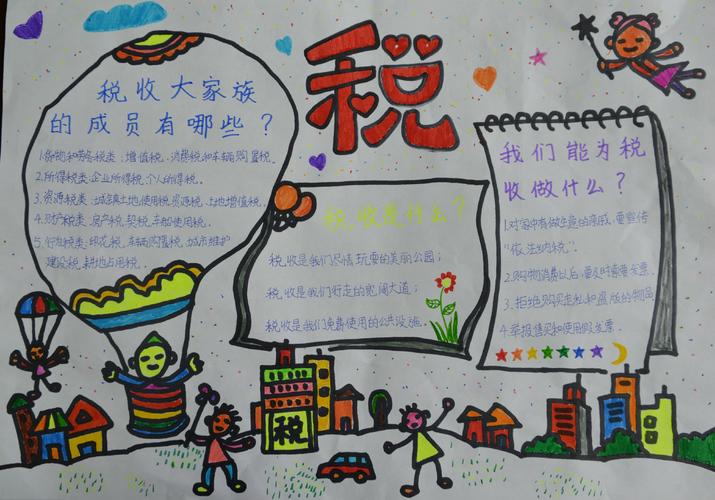 税
税收大家族
的成员有哪些？
1.货物和劳务税类：增值税、消费税和车辆购置税。
2.所得税类：企业所得税、个人所得税。
3.资源税类：城镇土地使用税、资源税、土地增值税。
4.财产税类：房产税、契税、车船使用税。
5.行为税类：印花税、车辆购置税、城市维护
建设税、耕地占用税。
税收是什么？
税收是我们尽情玩耍的美丽公园；
税收是我们行走的宽阔大道；
税收是我们免费使用的公共设施。
我们能为税
收做什么？
1.对家中有做生意的亲戚，要宣传
“依法纳税”。
2.购物消费以后，要及时索要发票.
3.拒绝购买走私和盗版的物品
4.举报售买和使用假发票.
税